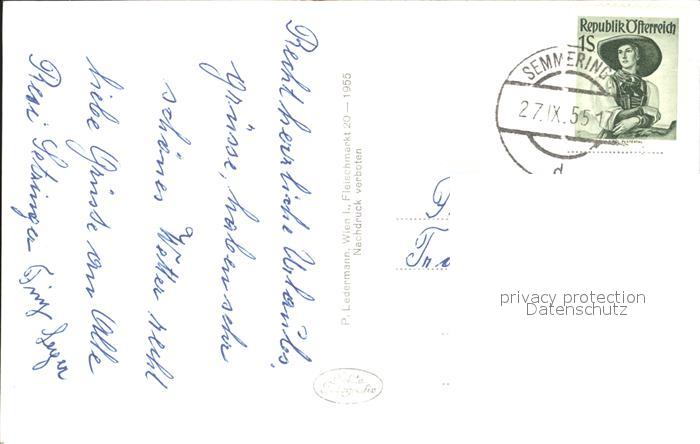 Recht herzliche Urlaubs.
grüsse, haben sehr
schönes Wetter recht
liebe Grüsse an Alle
Resi
P. Ledermann, Wien I., Fleischmarkt 20 — 1955
Nachdruck verboten
Republik Österreich
1S
SEMMERING
27.IX.55
privacy protection
Datenschutz